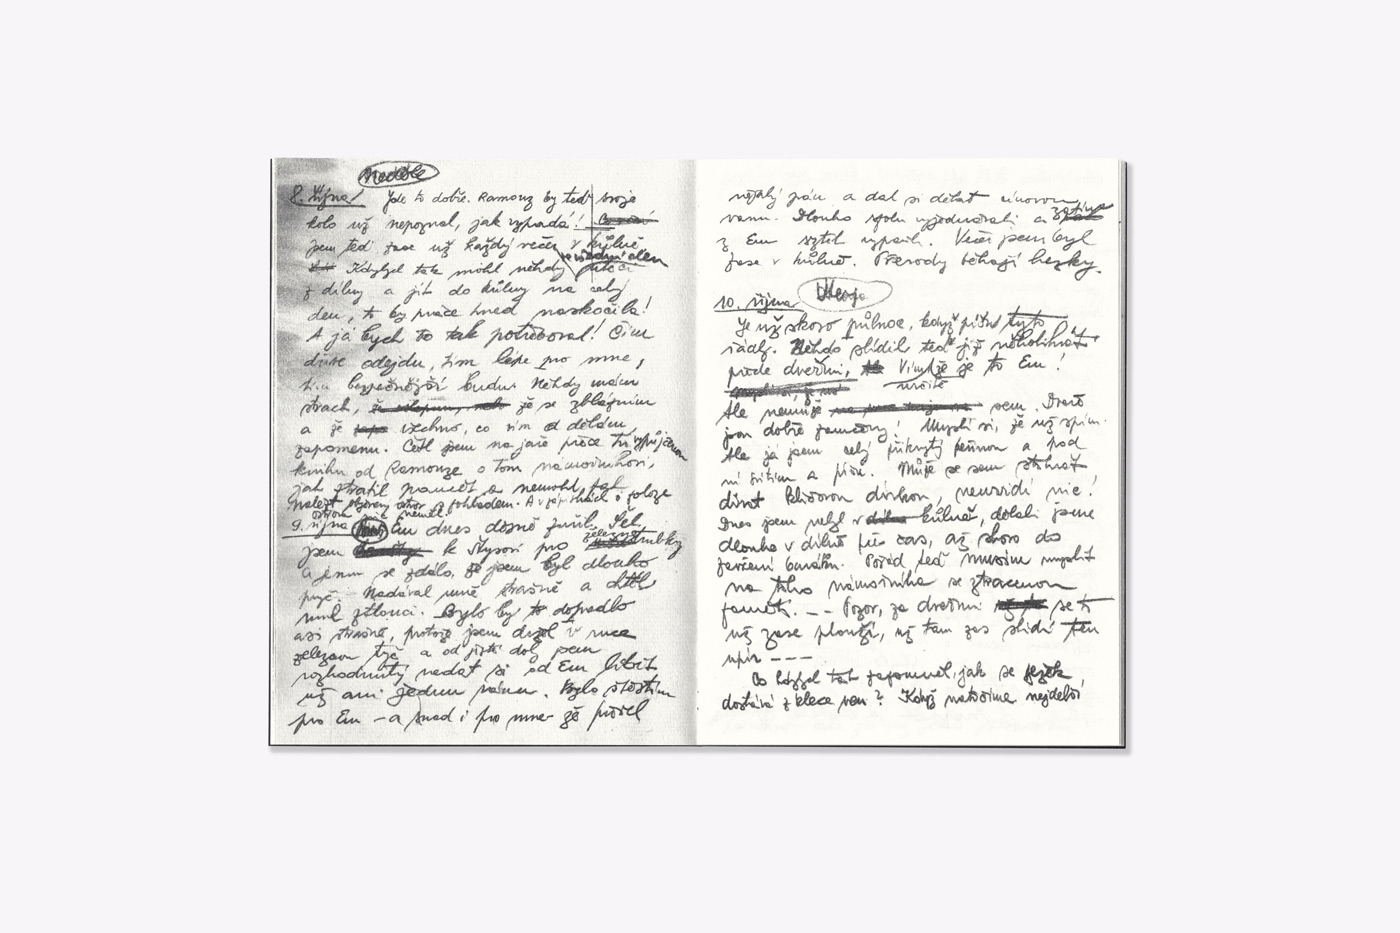 Neděle
8. října Jde to dobře. Ramouz by teď svoje
kolo už nepoznal, jak vypadá!
jsem teď zase už každý večer v kůlně
ve všední den
Kdybych tak mohl někdy utéci
z dílny a jít do kůlny na celý
den, to by práce hned naskočila!
A já bych to tak potřeboval! Čím
dříve odejdu, tím lépe pro mne,
tím bezpečnější budu. Někdy mám
strach, že se zblázním
a že všechno, co vím a dělám
zapomenu. Četl jsem na jaře přece tu vypůjčenou
knihu od Ramouze o tom námořníkovi,
jak ztratil paměť a nemohl
nalézt objevený ostrov s pokladem. A v
ostrova nic neměl!
9. října Em dnes dozně zuřil. Šel
jsem k Mysovi pro železné trubky
a jemu se zdálo, že jsem byl dlouho
pryč. Nadával mně strašně a chtěl
mne ztlouci. Bylo by to dopadlo
asi strašně, protože jsem držel v ruce
železnou tyč a od jisté doby jsem
rozhodnutý nedat si od Em líbit
už ani jednu ránu. Bylo štěstím
pro Em – a snad i pro mne že přišel
nějaký pán a dal si dělat
vanu. Dlouho spolu vyjednávali a zatím
z Em vztek vyprch. Večer jsem byl
zase v kůlně. Převody běhají hezky.
10. října
Je už skoro půlnoc, když píšu tyto
řádky. Někdo slídil teď již několikrát
přede dveřmi, Vím že je to Em!
určitě
Ale nemůže sem. Dveře
jsou dobře zamčeny! Myslí si, že už spím.
Ale já jsem celý přikrytý peřinou a pod
ní svítím a píšu. Může se sem stokrát
dívat klíčovou dírkou, neuvidí nic!
Dnes jsem nebyl v kůlně, dělali jsme
dlouho v dílně přes čas, až skoro do
zavření baráku. Pořád teď musím myslit
na toho námořníka se ztracenou
pamětí. – – Pozor, za dveřmi se ti
už zase plouží, už tam zas slídí ten
upír – – –
Co kdybych tak zapomněl, jak se ježek
dostává z klece ven? Když natočíme nejdelší